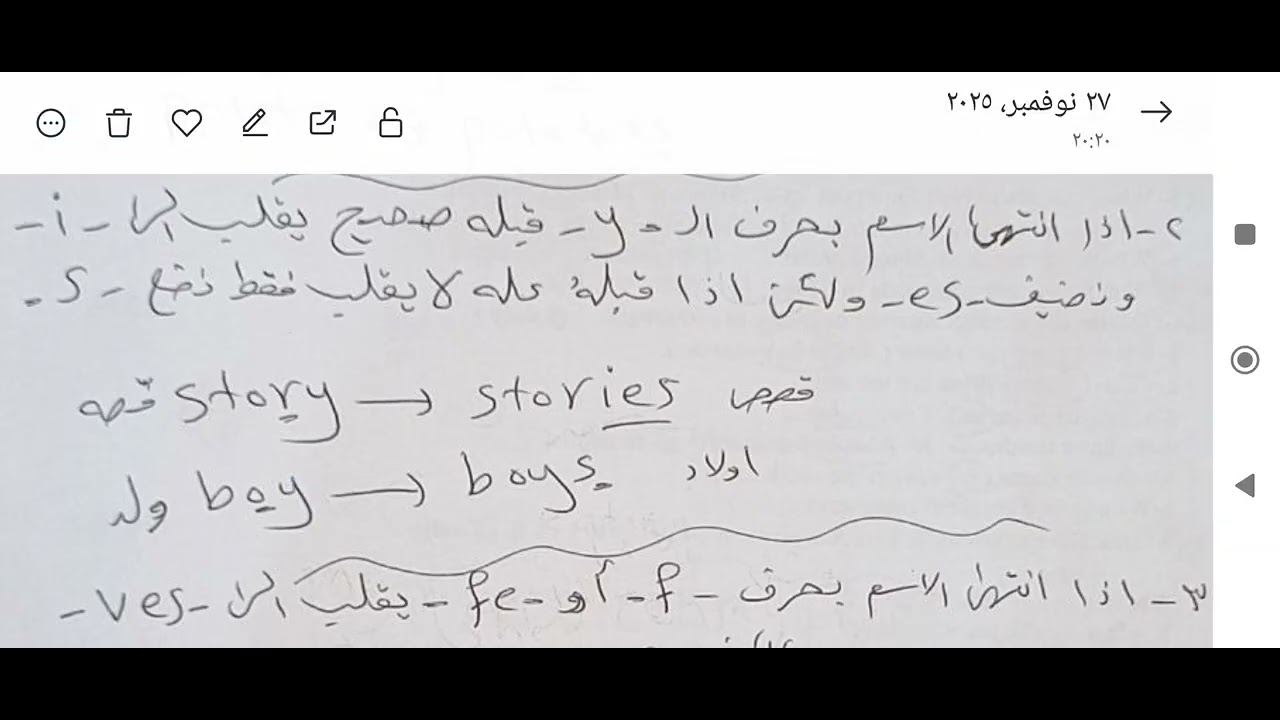 ٢٧ نوفمبر، ٢٠٢٥
٢٠:٢٠
٢- اذا انتهى الاسم بحرف الـ - y - قبله صحيح يقلب الى - i -
ونضيف - es - ولكن اذا قبله عله لا يقلب فقط نضع - s .
قصه story → stories قصص
ولد boy → boys اولاد
٣- اذا انتهى الاسم بحرف - f - أو - fe - يقلب الى - ves -